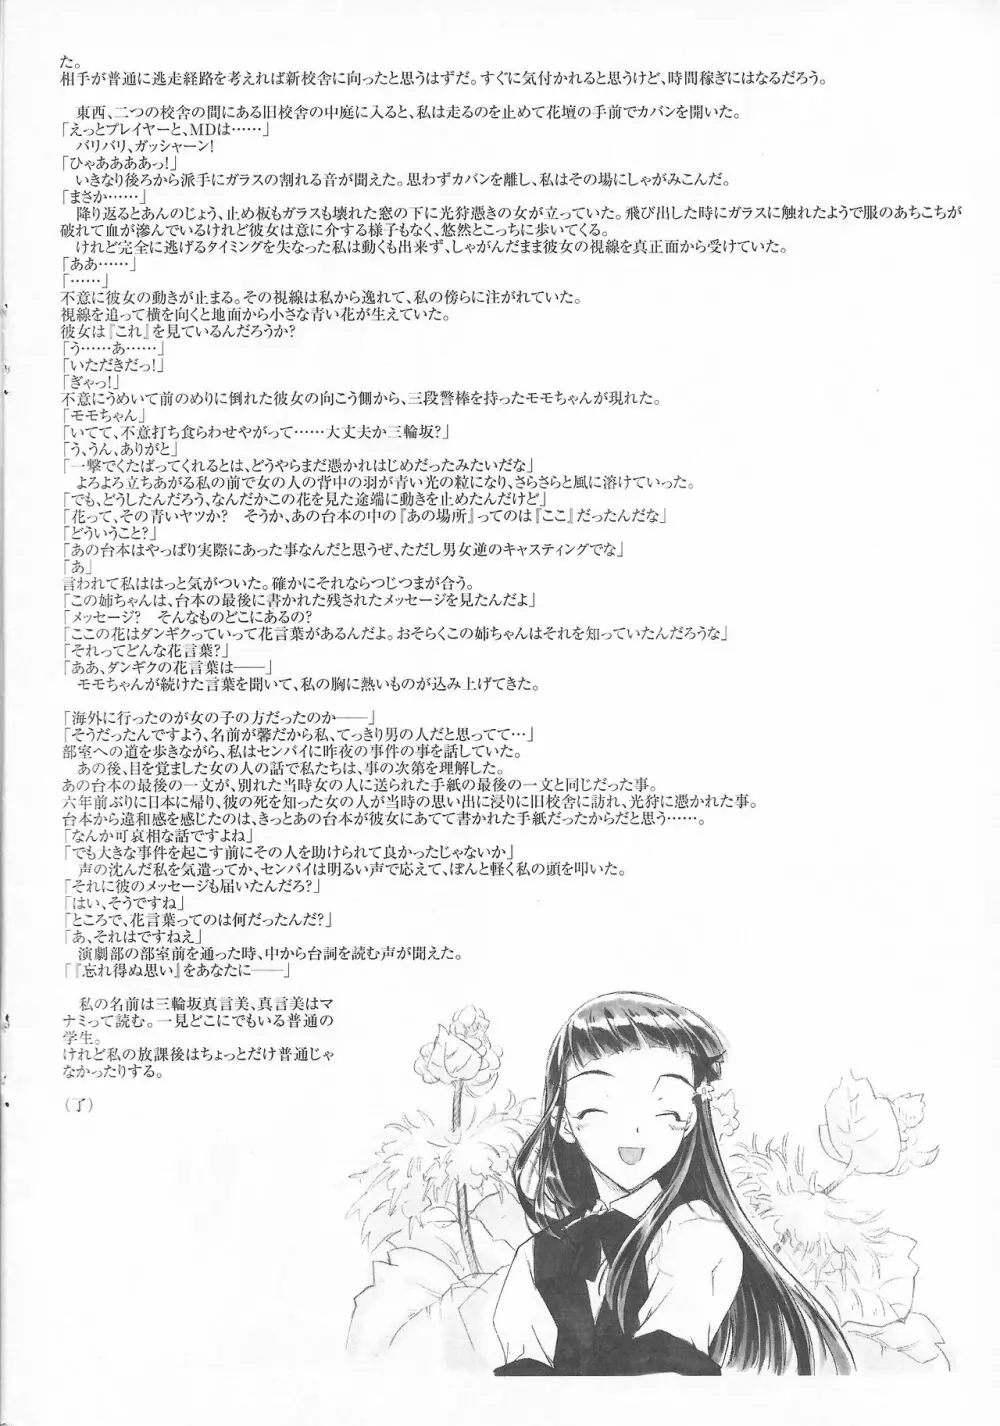 た。
相手が普通に逃走経路を考えれば新校舎に向ったと思うはずだ。すぐに気付かれると思うけど、時間稼ぎにはなるだろう。
東西、二つの校舎の間にある旧校舎の中庭に入ると、私は走るのを止めて花壇の手前でカバンを開いた。
「えっとプレイヤーと、MDは……」
バリバリ、ガッシャーン!
「ひゃああああっ!」
いきなり後ろから派手にガラスの割れる音が聞えた。思わずカバンを離し、私はその場にしゃがみこんだ。
「まさか……」
降り返るとあんのじょう、止め板もガラスも壊れた窓の下に光狩憑きの女が立っていた。飛び出した時にガラスに触れたようで服のあちこちが
破れて血が滲んでいるけれど彼女は意に介する様子もなく、悠然とこっちに歩いてくる。
けれど完全に逃げるタイミングを失なった私は動くも出来ず、しゃがんだまま彼女の視線を真正面から受けていた。
「ああ……」
「……」
不意に彼女の動きが止まる。その視線は私から逸れて、私の傍らに注がれていた。
視線を追って横を向くと地面から小さな青い花が生えていた。
彼女は『これ』を見ているんだろうか?
「う……あ……」
「いただきだっ!」
「ぎゃっ!」
不意にうめいて前のめりに倒れた彼女の向こう側から、三段警棒を持ったモモちゃんが現れた。
「モモちゃん」
「いてて、不意打ち食らわせやがって……大丈夫か三輪坂?」
「う、うん、ありがと」
「一撃でくたばってくれるとは、どうやらまだ憑かれはじめだったみたいだな」
よろよろ立ちあがる私の前で女の人の背中の羽が青い光の粒になり、さらさらと風に溶けていった。
「でも、どうしたんだろう、なんだかこの花を見た途端に動きを止めたんだけど」
「花って、その青いヤツか? そうか、あの台本の中の『あの場所』ってのは『ここ』だったんだな」
「どういうこと?」
「あの台本はやっぱり実際にあった事なんだと思うぜ、ただし男女逆のキャスティングでな」
「あ」
言われて私ははっと気がついた。確かにそれならつじつまが合う。
「この姉ちゃんは、台本の最後に書かれた残されたメッセージを見たんだよ」
「メッセージ? そんなものどこにあるの?
「ここの花はダンギクっていって花言葉があるんだよ。おそらくこの姉ちゃんはそれを知っていたんだろうな」
「それってどんな花言葉?」
「ああ、ダンギクの花言葉は――」
モモちゃんが続けた言葉を聞いて、私の胸に熱いものが込み上げてきた。
「海外に行ったのが女の子の方だったのか――」
「そうだったんですよう、名前が馨だから私、てっきり男の人だと思ってて…」
部室への道を歩きながら、私はセンパイに昨夜の事件の事を話していた。
あの後、目を覚ました女の人の話で私たちは、事の次第を理解した。
あの台本の最後の一文が、別れた当時女の人に送られた手紙の最後の一文と同じだった事。
六年前ぶりに日本に帰り、彼の死を知った女の人が当時の思い出に浸りに旧校舎に訪れ、光狩に憑かれた事。
台本から違和感を感じたのは、きっとあの台本が彼女にあてて書かれた手紙だったからだと思う……。
「なんか可哀相な話ですよね」
「でも大きな事件を起こす前にその人を助けられて良かったじゃないか」
声の沈んだ私を気遣ってか、センパイは明るい声で応えて、ぽんと軽く私の頭を叩いた。
「それに彼のメッセージも届いたんだろ?」
「はい、そうですね」
「ところで、花言葉ってのは何だったんだ?」
「あ、それはですねえ」
演劇部の部室前を通った時、中から台詞を読む声が聞えた。
「『忘れ得ぬ思い』をあなたに――」
私の名前は三輪坂真言美、真言美はマ
ナミって読む。一見どこにでもいる普通の
学生。
けれど私の放課後はちょっとだけ普通じゃ
なかったりする。
（了）